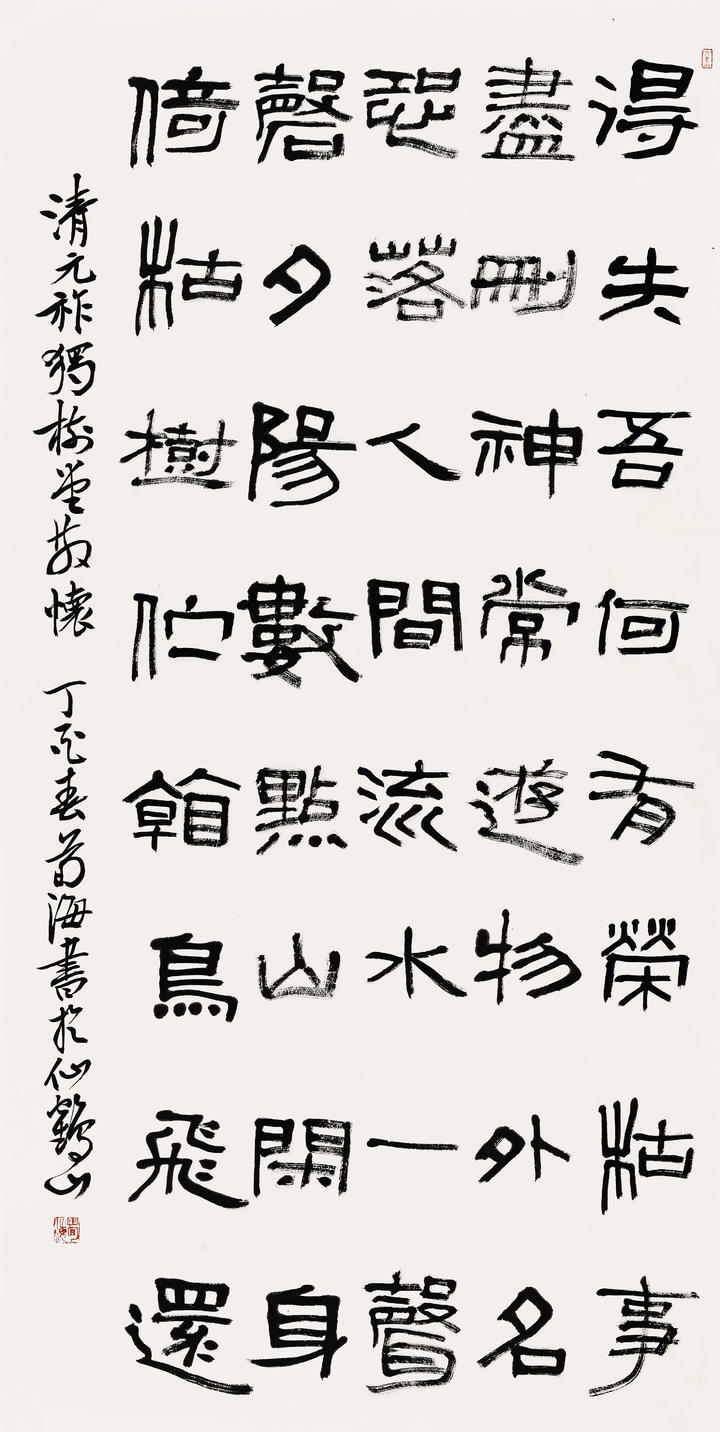 得失吾何有榮枯事
盡刪神常遊物外名
恐落人間流水一聲
磬夕陽數點山閑身
倚枯樹伫看鳥飛還
清元祚獨樹堂散懷 丁酉春海書於仙鶴山